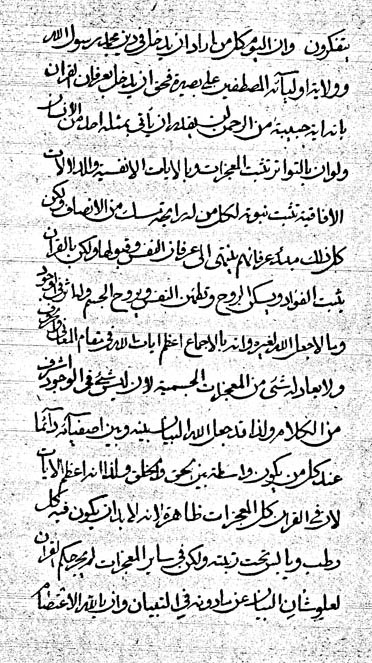 يتفكرون وان اليوم كل من اراد ان يدخل في دين محمد رسول الله
وولاية اوليائه المصطفين على بصيرة فحق ان يدخل بعرفان القران
بانه اية حجيبة من الرحمن لن يقدر ان يأتي بمثله احد من الانسان
ولو ان بالتواتر تثبت المعجزات وبالايات الانفسية والدلالات
الافاقية تثبت نبوته لكل من له رايحة مسك من الانصاف ولكن
كل ذلك مبدء عرفانهم ينتهي الى عرفان النفس وقبولها ولكن بالقران
يثبت الفؤاد ويسكن الروح وتطمئن النفس ويروح الجسم
وبالاجعل الله لغيره وانه بالاجماع اعظم ايات الله في مقام
ولا يعادله شيء من المعجزات الجسمية لان ليس شيء في الوجود اشرف
من الكلام ولذا قد جعل الله البيان بينه وبين اصفيائه دائما
عند كل من يكون واسطة بين الحق والخلق ولذا انه اعظم الايات
لان في القران كل المعجزات ظاهرة لانه لابد ان يكون فيه كل
رطب ويابس تحت رتبته ولكن في ساير المعجزات لم يجر حكم القران
لعلو شان البيان عن مادونه في التبيان وان بالله الاعتصام